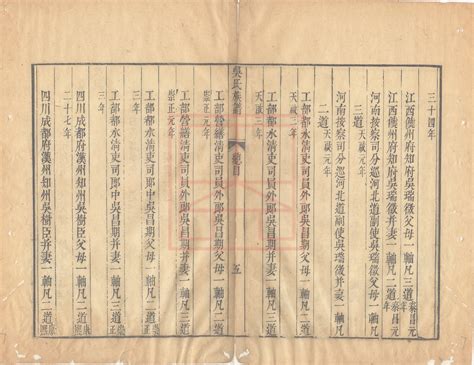 三十四年
江西饒州府知府吳瑞徵父母一軸凡三道泰昌元年
江西饒州府知府吳瑞徵并妻一軸凡二道泰昌元年
河南按察司分巡河北道副使吳瑞徵父母一軸凡
三道天啟元年
河南按察司分巡河北道副使吳瑞徵并妻一軸凡
二道天啟元年
工部都水清吏司員外郎吳昌期父母一軸凡三道
天啟三年
工部都水清吏司員外郎吳昌期并妻一軸凡二道
天啟三年
吳氏族譜 總目 五
工部營繕清吏司員外郎吳昌期父母一軸凡三道
崇正元年
工部營繕清吏司員外郎吳昌期并妻一軸凡三道
崇正元年
工部都水清吏司郎中吳昌期父母一軸凡三道崇正
元年
工部都水清吏司郎中吳昌期并妻一軸凡三道崇正
元年
四川成都府漢州知州吳樹臣父母一軸凡二道康熙
二十七年
四川成都府漢州知州吳樹臣并妻一軸凡二道康熙